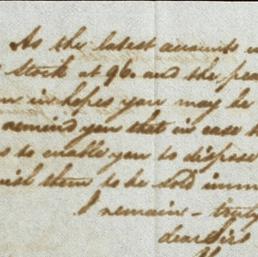 As the latest accounts
Stock at 96. and the
in hopes you may be
remind you that in case
to enable you to dispose
wish them to be sold imm
I remain - truly
dear Sirs